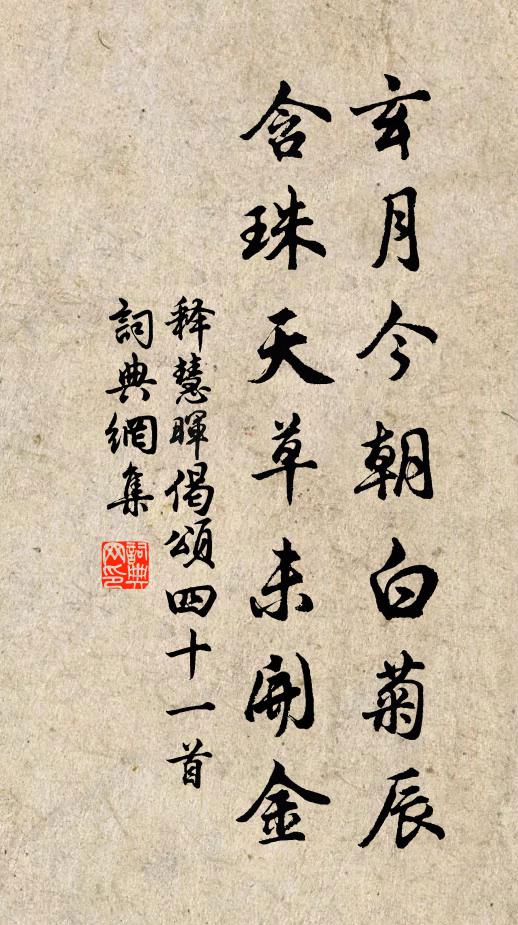 玄月今朝白菊辰
含珠天草未開金
释慧暉偈頌四十一首
詞典網集
詞典網印